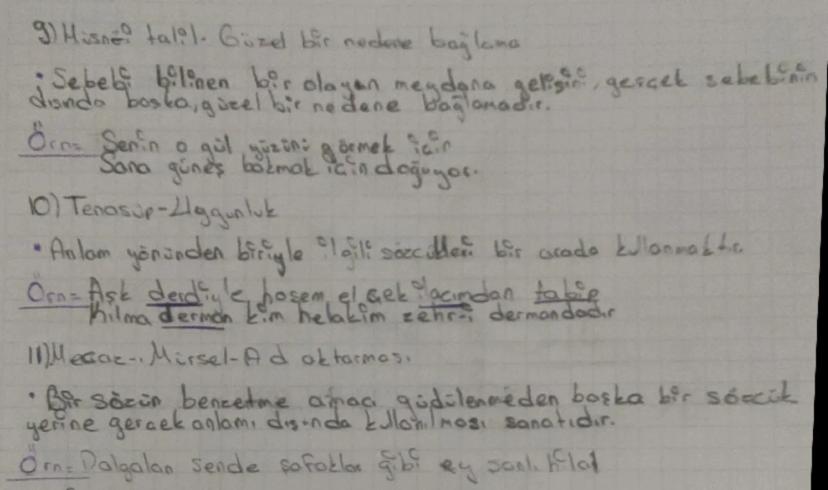 9) Hüsnei talil. Güzel bir nedene bağlama
• Sebebi bilinen bir olayın meydana gelişini, gerçek sebebinin
dışında başka, güzel bir nedene bağlamadır.
Örn= Senin o gül yüzünü görmek için
Sana güneş bakmak için doğuyor.
10) Tenasüp-Uygunluk
• Anlam yönünden biriyle ilgili sözcükleri bir arada kullanmaktır.
Örn= Aşk derdiyle hoşem el çek ilacımdan tabip
Kılma derman kim helakim zehri dermandadır
11) Mecaz-ı Mürsel-Ad aktarması
• Bir sözün benzetme amacı güdülenmeden başka bir sözcük
yerine gerçek anlamı dışında kullanılması sanatıdır.
Örn= Dalgalan sende şafaklar gibi ey şanlı hilal